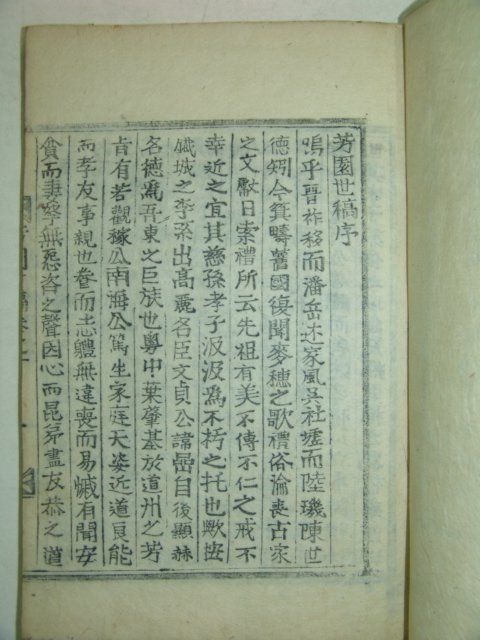 芳園世稿序
嗚乎晋祚移而潘岳述家風吳社墟而陸璣陳世
德矧今箕疇舊國復聞麥穗之歌禮俗淪喪古家
之文獻日索禮所云先祖有美不傳不仁之戒不
幸近之宜其慈孫孝子汲汲爲不朽之托也歟按
鐵城之李系出高麗名臣文貞公諱嵒自後顯赫
名德爲吾東之巨族也粤中葉肇基於道州之芳
旨有若觀稼公南海公篤生家庭天姿近道良能
而孝友事親也養而志體無違喪而易慽有聞安
貧而妻孥無惡咨之聲因心而昆弟盡友恭之道